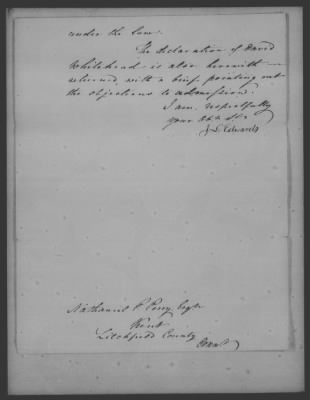 under the law.
The declaration of David
Whitehead is also herewith
returned, with a brief pointing out
the objections to admission.
I am, respectfully
your Obt. St.
J. L. Edwards
Nathaniel P. Perry Esqr
Kent
Litchfield County
Conn.